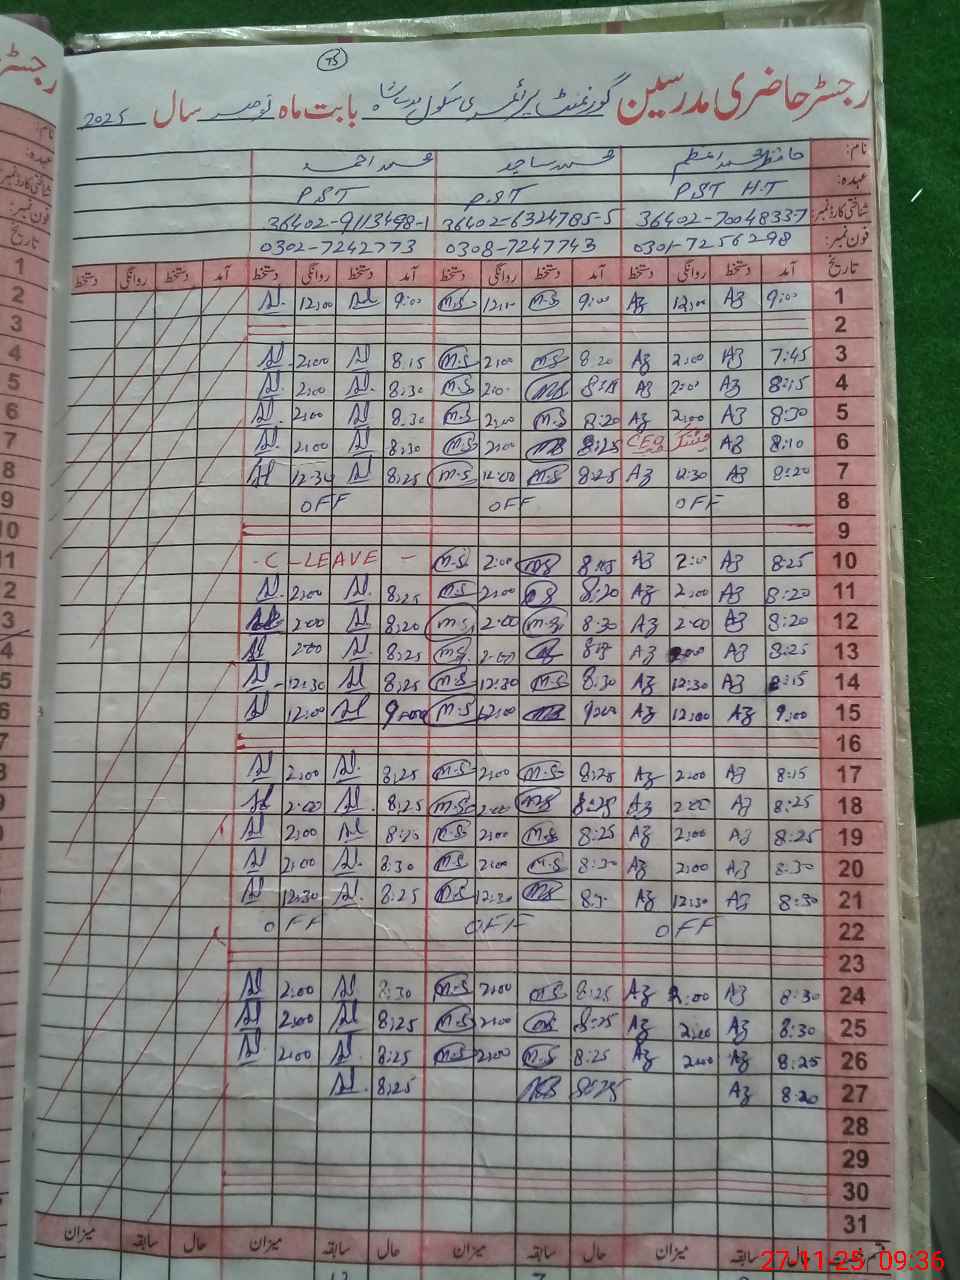 75
رجسٹر حاضری مدرسین گورنمنٹ پرائمری سکول بابت ماہ نومبر سال 2025
نام: حافظ محمد اعظم محمد ساجد محمد احمد
عہدہ: PST HT P.S.T P.S.T
شناختی کارڈ نمبر: 36402-7004833-7 36402-6324785-5 36402-9113498-1
فون نمبر: 0301-7256298 0308-7247743 0302-7242773
تاریخ آمد دستخط روانگی دستخط آمد دستخط روانگی دستخط آمد دستخط روانگی دستخط آمد دستخط روانگی دستخط
1 9:00 Az 12:00 Az 9:00 M-S 12:00 M-S 9:00 12:00
2
3 7:45 Az 2:00 Az 8:20 M-S 2:00 M-S 8:15 2:00
4 8:15 Az 2:00 Az MS 2:00 M-S 8:30 2:00
5 8:30 Az 2:00 Az 8:20 M-S 2:00 M-S 8:30 2:00
6 8:10 Az CEO 8:25 MS 2:00 M-S 8:30 2:00
7 8:20 Az 12:30 Az 8:25 M-S 12:00 M-S 8:25 12:30
8 OFF OFF OFF
9
10 8:25 Az 2:00 Az MS 2:00 M-S - C - LEAVE -
11 8:20 Az 2:00 Az 8:20 MS 2:00 M-S 8:25 2:00
12 8:20 Az 2:00 Az 8:30 M-S 2:00 M-S 8:20 2:00
13 8:25 Az 2:00 Az 2:00 M-S 8:25 2:00
14 8:15 Az 12:30 Az 8:30 M-S 12:30 M-S 8:25 12:30
15 9:00 Az 12:00 Az 9:00 MS 12:00 M-S 9:00 12:00
16
17 8:15 Az 2:00 Az 8:25 M-S 2:00 M-S 8:25 2:00
18 8:25 Az 2:00 Az 8:25 MS 2:00 M-S 8:25 2:00
19 8:25 Az 2:00 Az 8:25 M-S 2:00 M-S 8:20 2:00
20 8:30 Az 2:00 Az 8:30 M-S 2:00 M-S 8:30 2:00
21 8:30 Az 12:30 Az MS 12:30 M-S 8:25 12:30
22 OFF OFF OFF
23
24 8:30 Az 2:00 Az 8:25 M-S 2:00 M-S 8:30 2:00
25 8:30 Az 2:00 Az 8:25 MS 2:00 M-S 8:25 2:00
26 8:25 Az 2:00 Az 8:25 M-S 2:00 M-S 8:25 2:00
27 8:20 Az 8:25 MS 8:25
28
29
30
31
حال سابقہ میزان حال سابقہ میزان حال سابقہ میزان حال سابقہ میزان
27-11-25 09:36